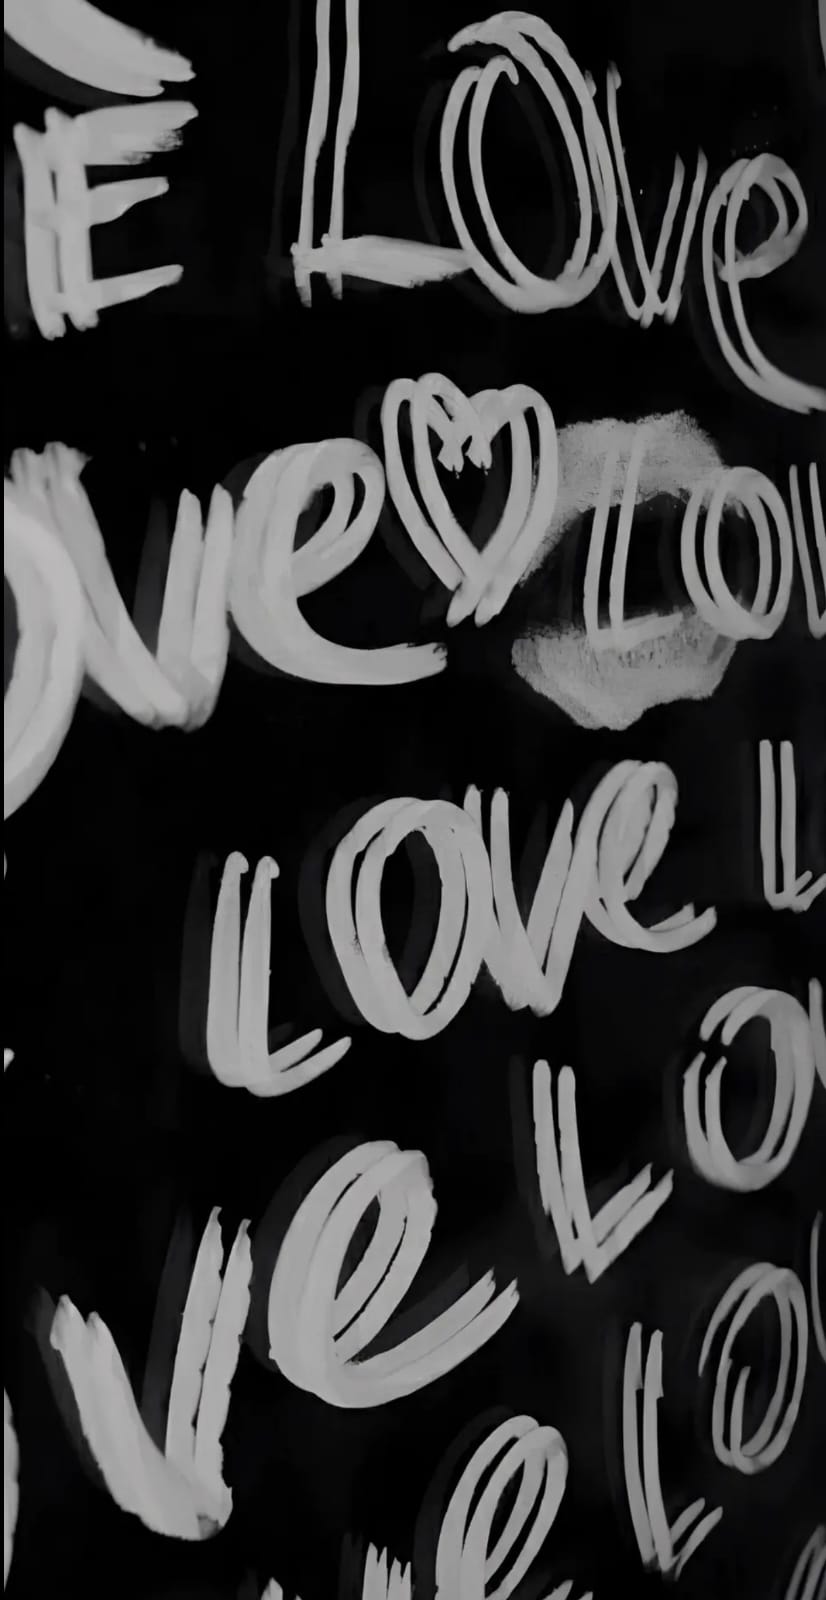 E Love
ove Lov
Love L
Lo
ve Lo
e